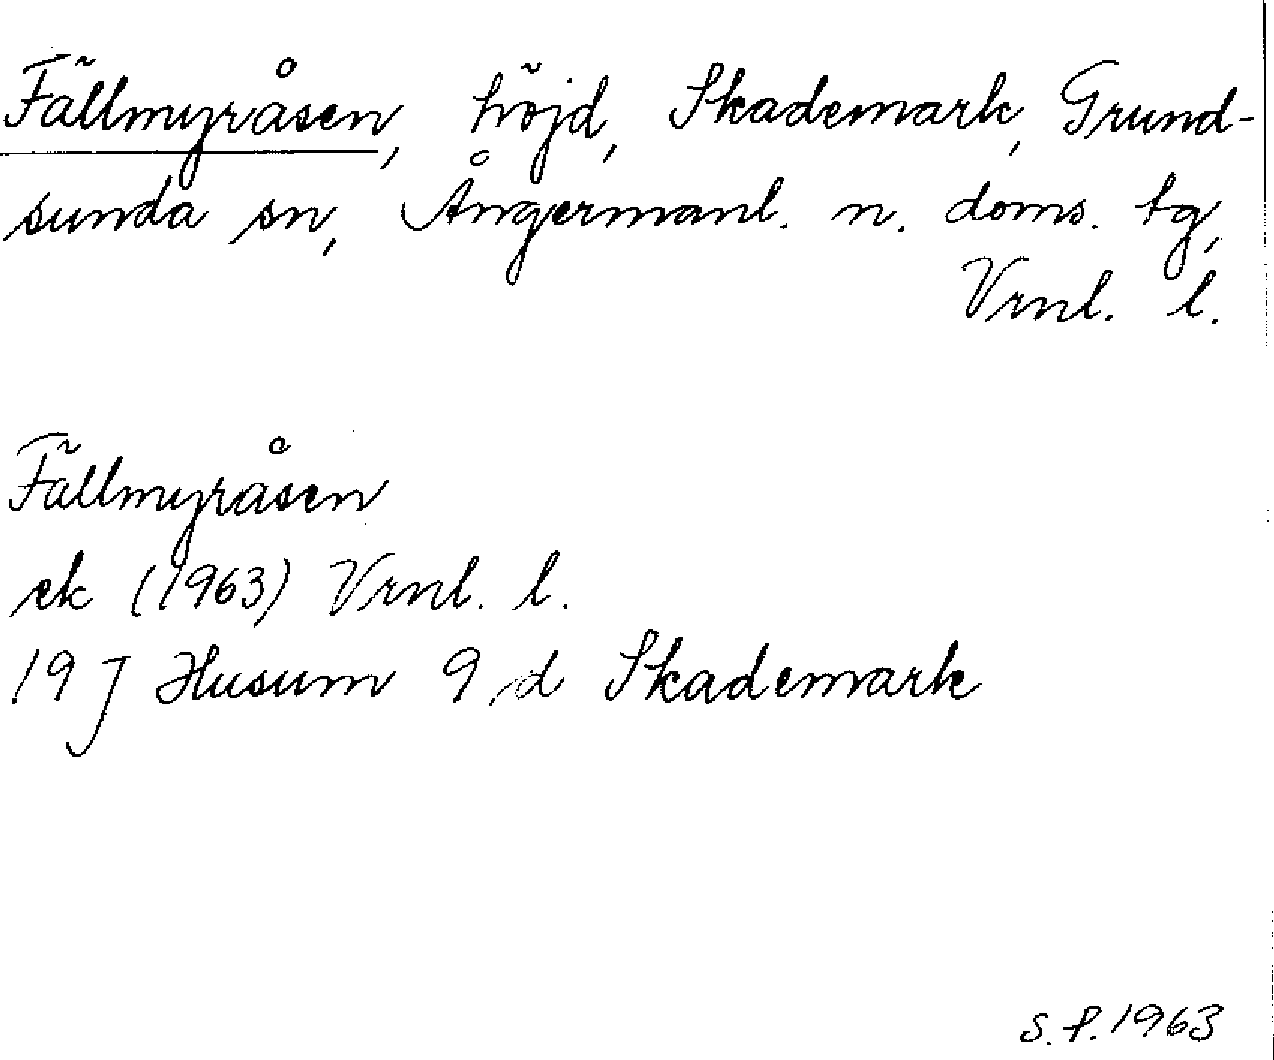 Fällmyråsen, höjd, Skademark, Grund-
sunda sn, Ångermanl. n. doms. tg,
Vrnl. l.
Fällmyråsen
ek (1963) Vrnl. l.
19 J Husum 9 d Skademark
S.P. 1963